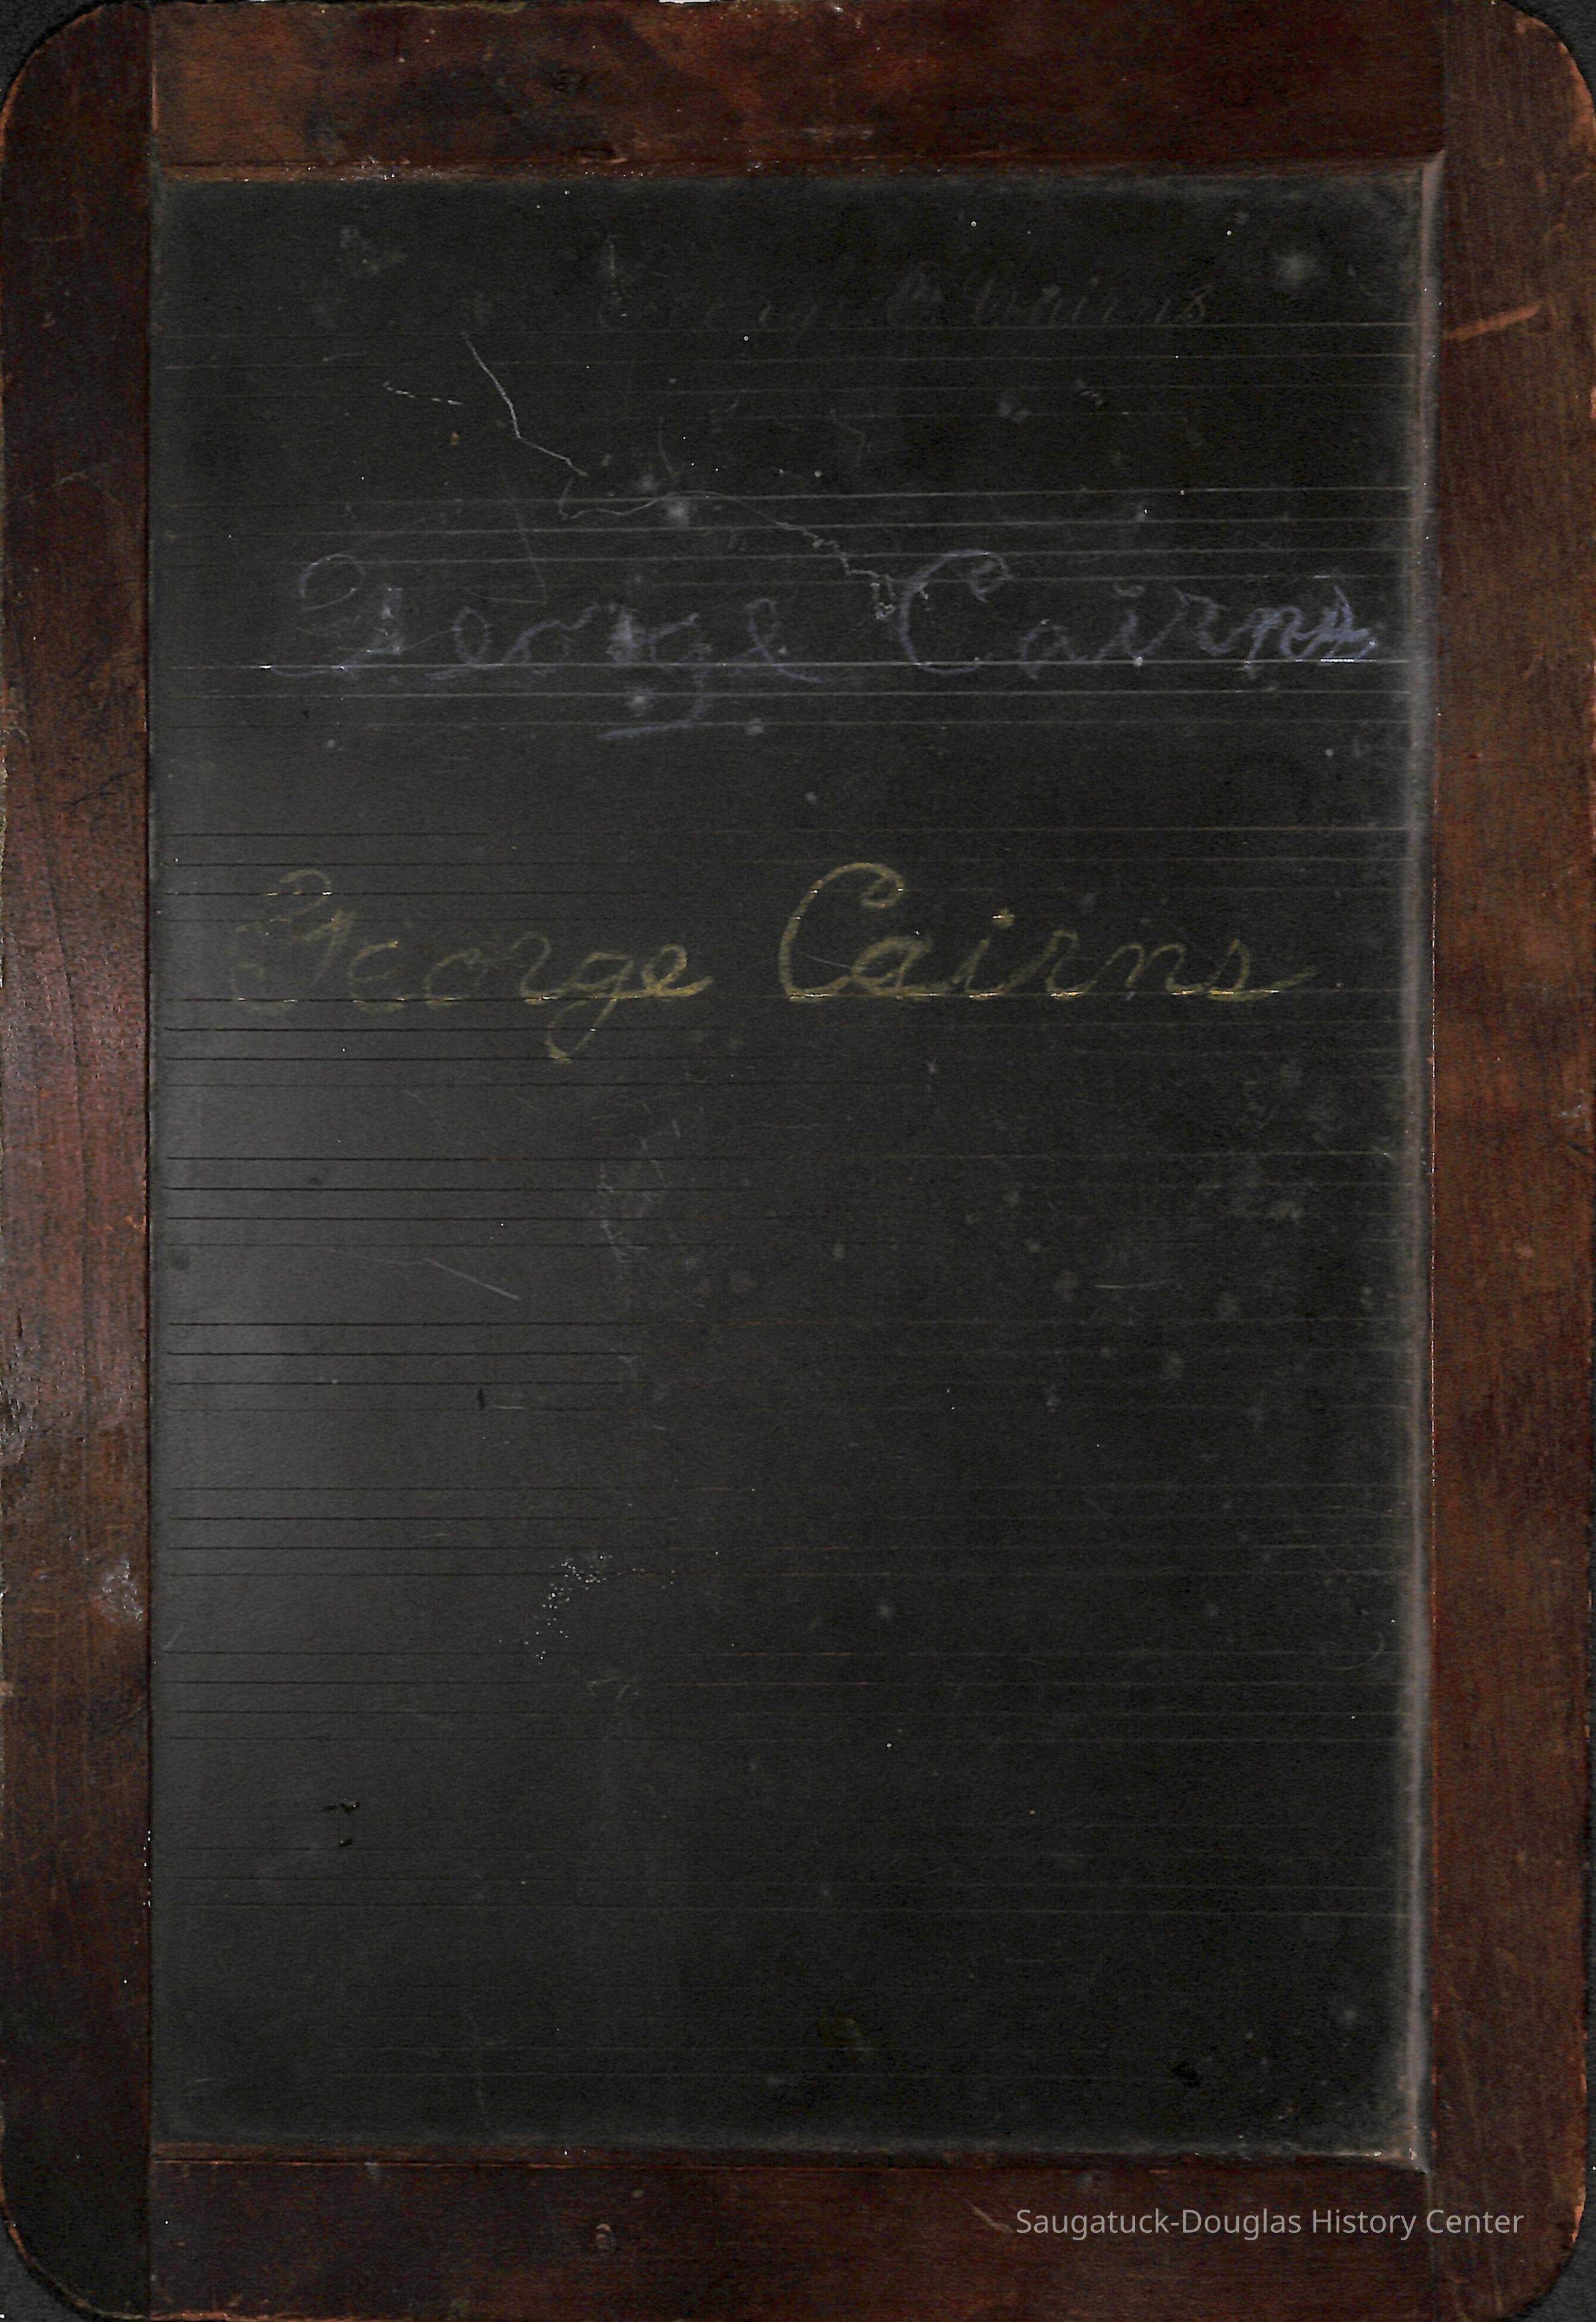 George Cairns
George Cairns
Saugatuck-Douglas History Center